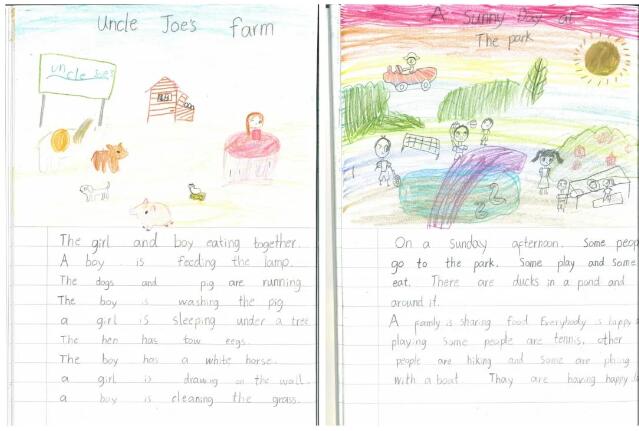 Uncle Joe's farm
uncle Joe's
The girl and boy eating together.
A boy is feeding the lamp.
The dogs and pig are running
The boy is washing the pig.
a girl is sleeping under a tree
The hen has tow eegs.
The boy has a white horse.
a girl is drawing on the wall.
a boy is cleaning the grass.
A Sunny Day at
The park
On a sunday afternoon. Some peop
go to the park. Some play and some
eat. There are ducks in a pond and
around it.
A family is sharing food Everybody is happy
playing Some people are tennis, other
people are hiking and some are plaing
with a boat Thay are having happy